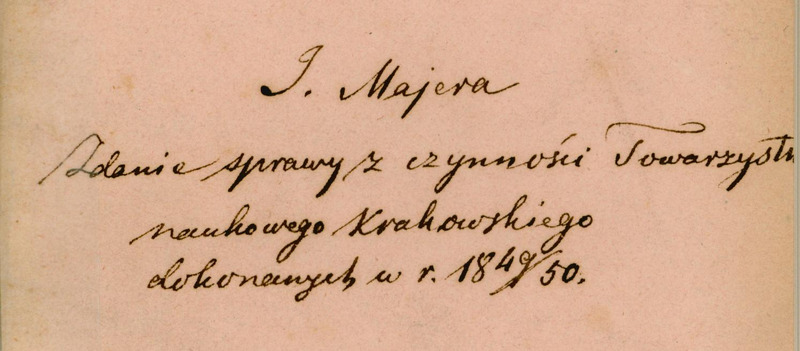 J. Majera
Zdanie sprawy z czynności Towarzystw
naukowego Krakowskiego
dokonanych w r. 1849/50.